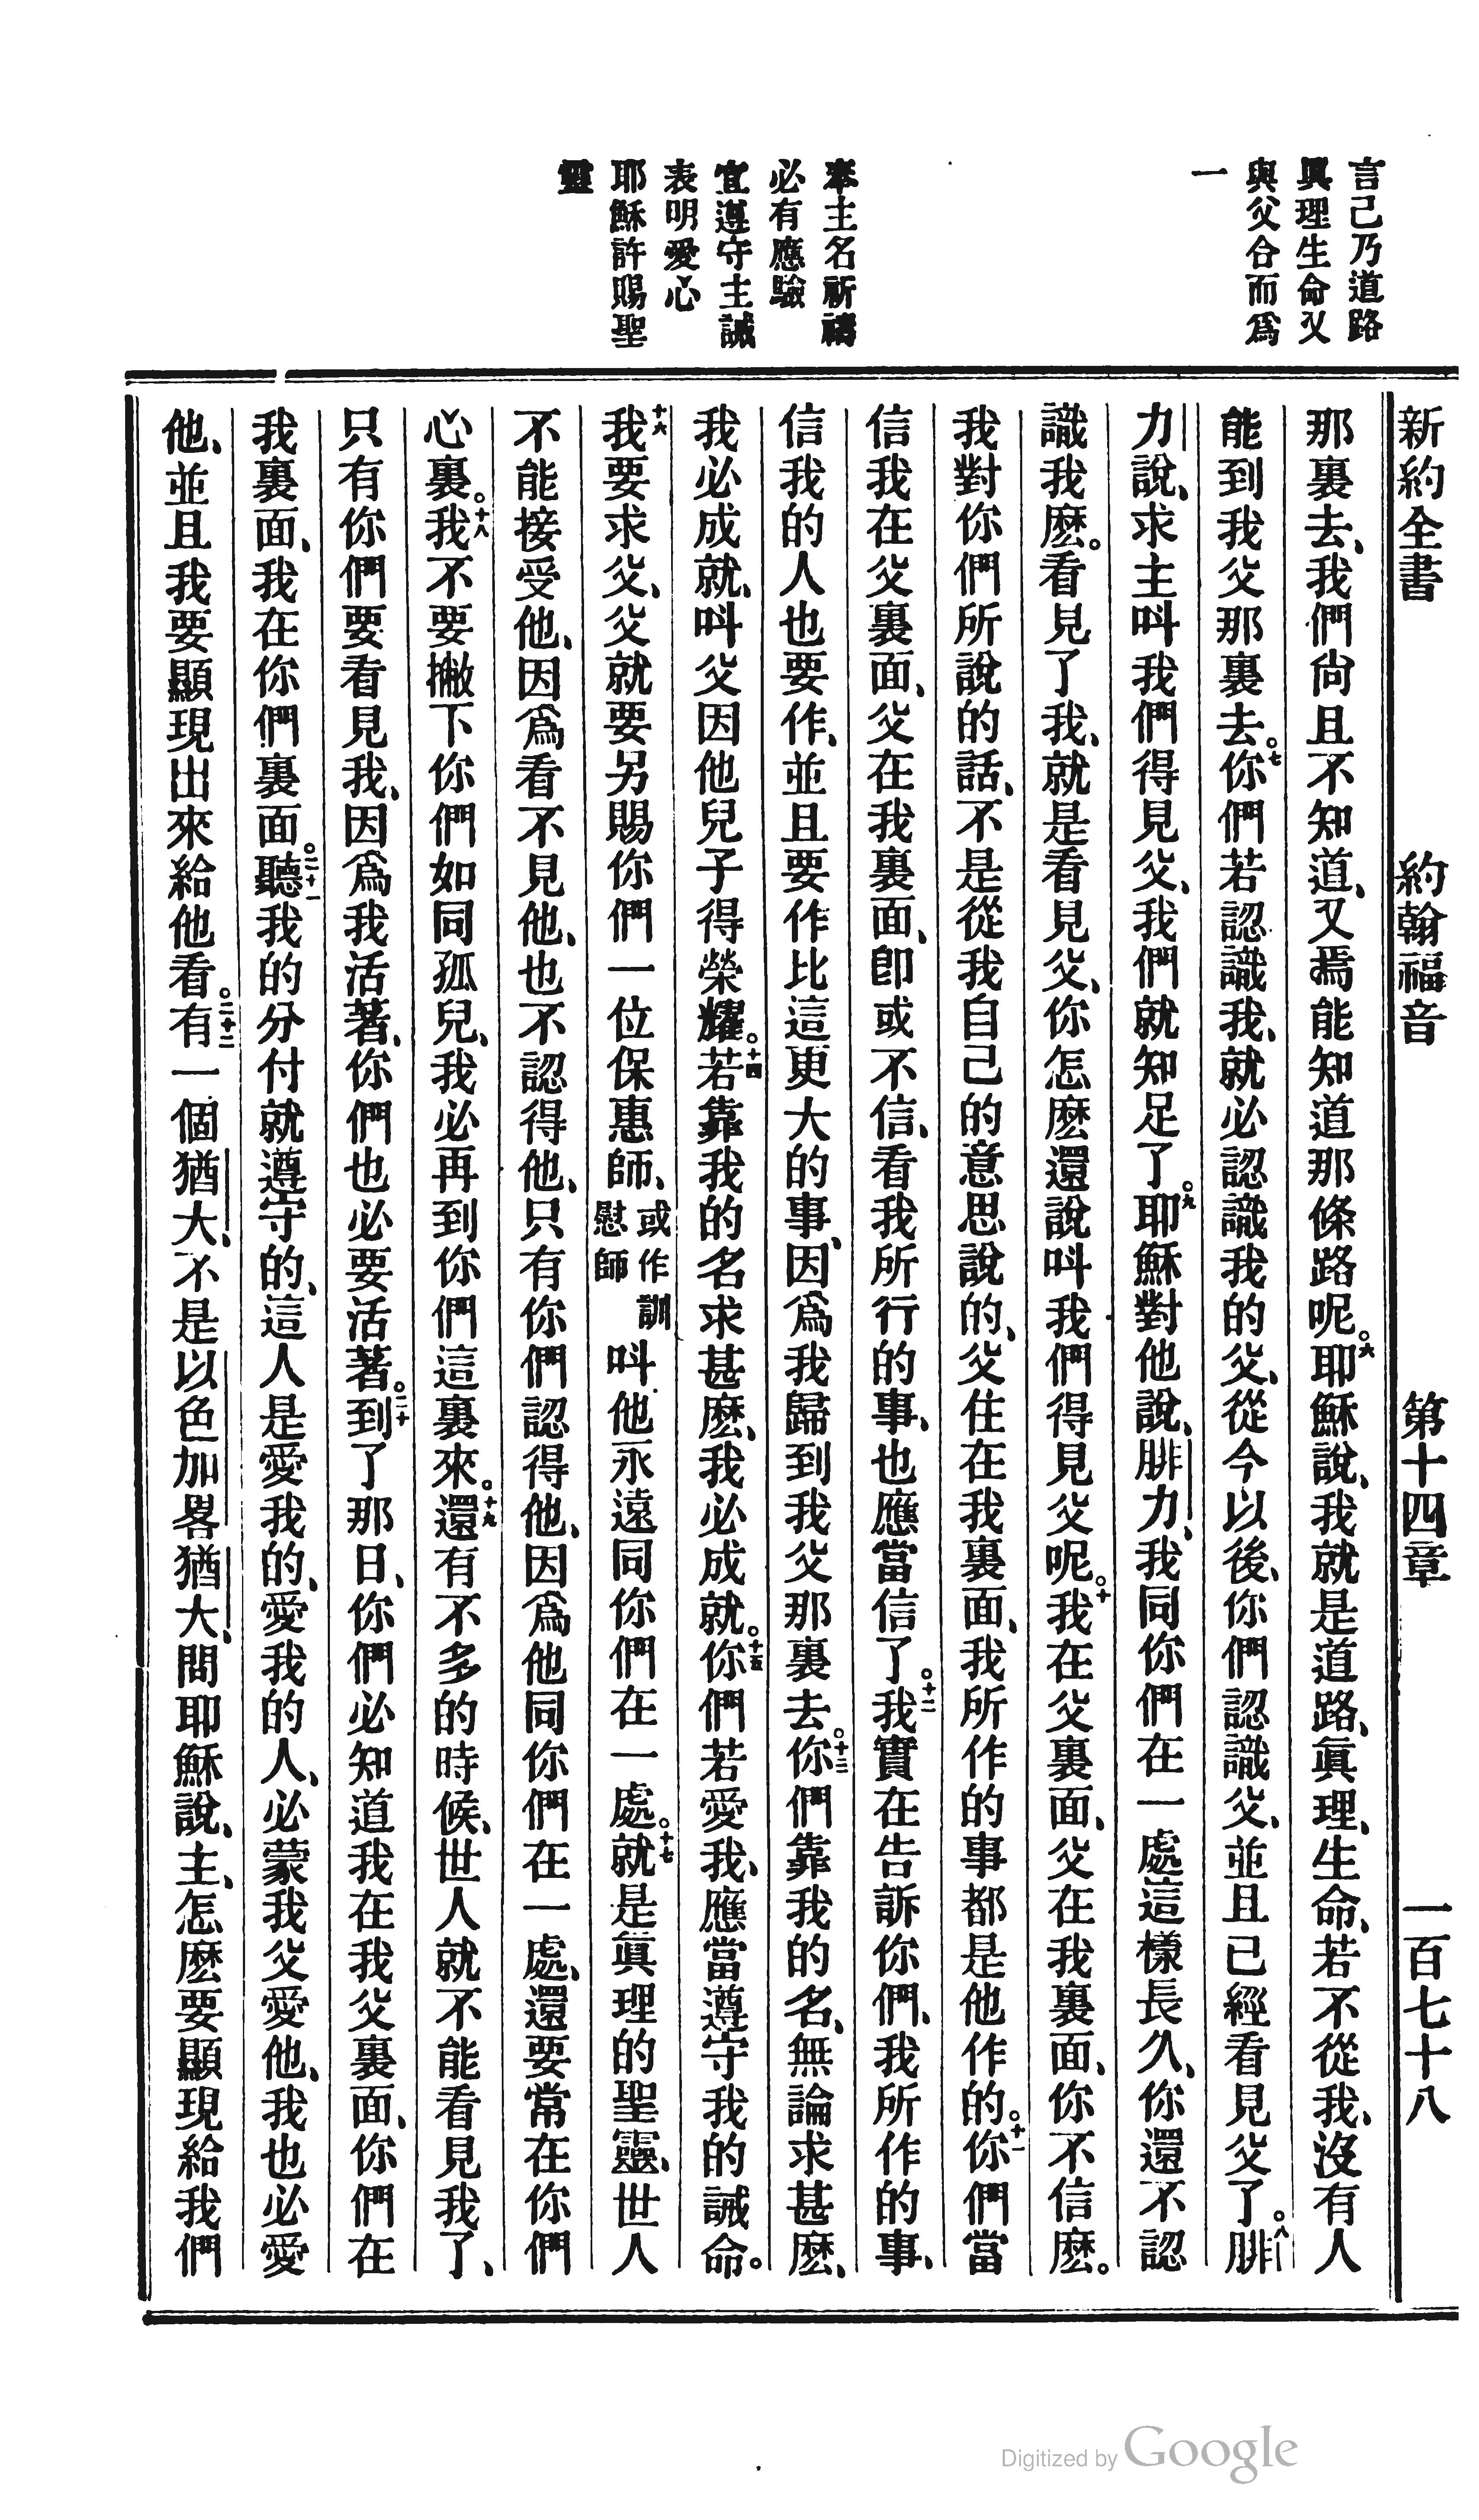 新約全書 約翰福音 第十四章 一百七十八
言己乃道路
與理生命又
與父合而爲
一
奉主名祈禱
必有應驗
宜遵守主誡
表明愛心
耶穌許賜聖
靈
那裏去、我們尙且不知道、又焉能知道那條路呢。六耶穌說、我就是道路、眞理、生命、若不從我、沒有人
能到我父那裏去。七你們若認識我、就必認識我的父、從今以後、你們認識父、並且已經看見父了。八腓
力說、求主呌我們得見父、我們就知足了。九耶穌對他說、腓力、我同你們在一處這樣長久、你還不認
識我麽。看見了我、就是看見父、你怎麽還說呌我們得見父呢。十我在父裏面、父在我裏面、你不信麽。
我對你們所說的話、不是從我自己的意思說的、父住在我裏面、我所作的事都是他作的。十一你們當
信我在父裏面、父在我裏面、卽或不信、看我所行的事、也應當信了。十二我實在告訴你們、我所作的事、
信我的人也要作、並且要作比這更大的事、因爲我歸到我父那裏去。十三你們靠我的名、無論求甚麽、
我必成就、呌父因他兒子得榮耀。十四若靠我的名求甚麽、我必成就。十五你們若愛我、應當遵守我的誡命。
十六我要求父、父就要另賜你們一位保惠師、或作訓慰師呌他永遠同你們在一處。十七就是眞理的聖靈、世人
不能接受他、因爲看不見他、也不認得他、只有你們認得他、因爲他同你們在一處、還要常在你們
心裏。十八我不要撇下你們如同孤兒、我必再到你們這裏來。十九還有不多的時候、世人就不能看見我了、
只有你們要看見我、因爲我活著、你們也必要活著。二十到了那日、你們必知道我在我父裏面、你們在
我裏面、我在你們裏面。二十一聽我的分付就遵守的、這人是愛我的、愛我的人、必蒙我父愛他、我也必愛
他、並且我要顯現出來給他看。二十二有一個猶大、不是以色加畧猶大、問耶穌說、主、怎麽要顯現給我們
Digitized by Google